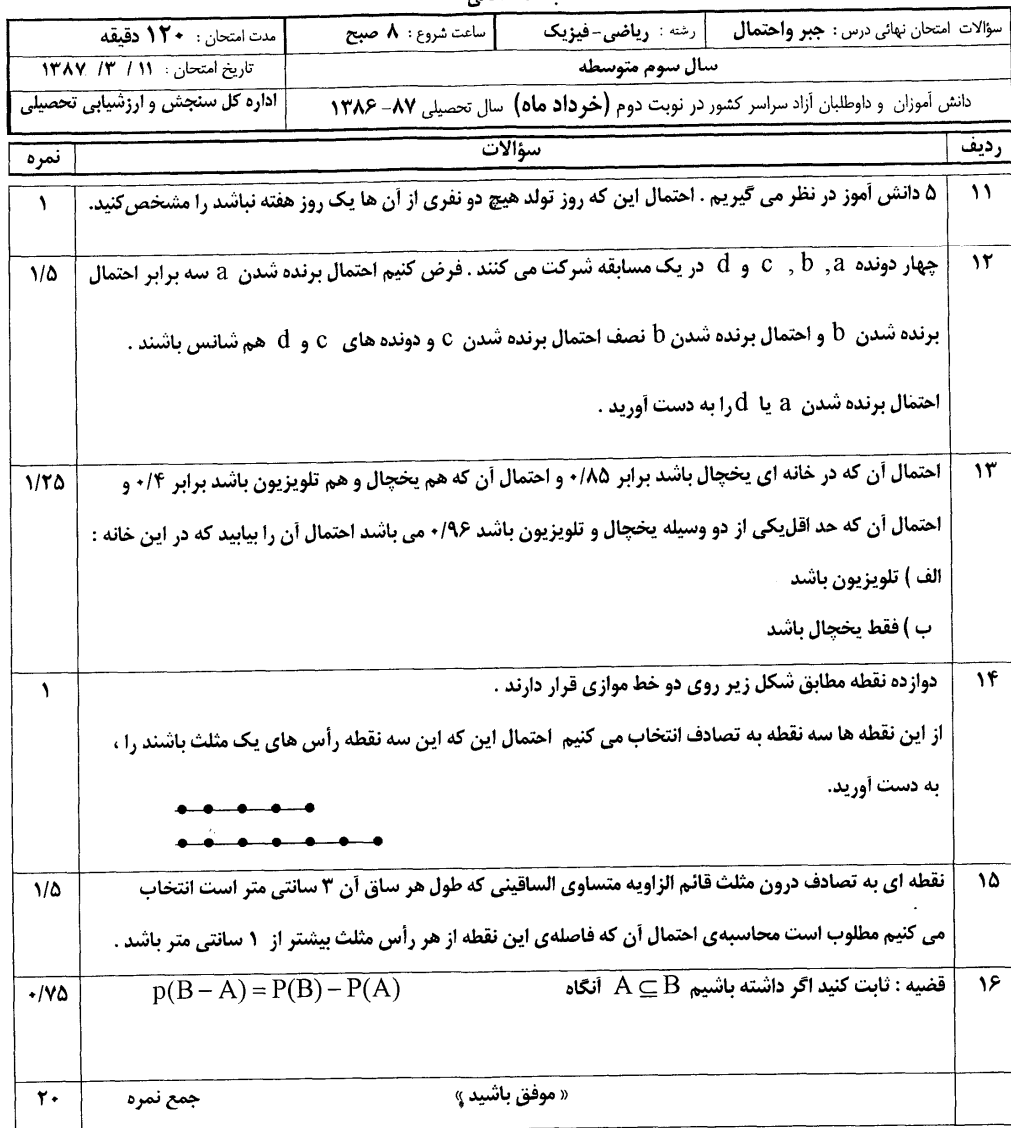 سؤالات امتحان نهائی درس : جبر واحتمال رشته : ریاضی-فیزیک ساعت شروع : ۸ صبح مدت امتحان : ۱۲۰ دقیقه
سال سوم متوسطه تاریخ امتحان : ۱۱ / ۳/ ۱۳۸۷
دانش آموزان و داوطلبان آزاد سراسر کشور در نوبت دوم (خرداد ماه) سال تحصیلی ۸۷-۱۳۸۶ اداره کل سنجش و ارزشیابی تحصیلی
ردیف سؤالات نمره
۱۱ ۵ دانش آموز در نظر می گیریم . احتمال این که روز تولد هیچ دو نفری از آن ها یک روز هفته نباشد را مشخص کنید. ۱
۱۲ چهار دونده a , b , c و d در یک مسابقه شرکت می کنند . فرض کنیم احتمال برنده شدن a سه برابر احتمال ۱/۵
برنده شدن b و احتمال برنده شدن b نصف احتمال برنده شدن c و دونده های c و d هم شانس باشند .
احتمال برنده شدن a یا d را به دست آورید .
۱۳ احتمال آن که در خانه ای یخچال باشد برابر ۰/۸۵ و احتمال آن که هم یخچال و هم تلویزیون باشد برابر ۰/۴ و ۱/۲۵
احتمال آن که حد اقل یکی از دو وسیله یخچال و تلویزیون باشد ۰/۹۶ می باشد احتمال آن را بیابید که در این خانه :
الف ) تلویزیون باشد
ب ) فقط یخچال باشد
۱۴ دوازده نقطه مطابق شکل زیر روی دو خط موازی قرار دارند . ۱
از این نقطه ها سه نقطه به تصادف انتخاب می کنیم احتمال این که این سه نقطه رأس های یک مثلث باشند را ،
به دست آورید.
۱۵ نقطه ای به تصادف درون مثلث قائم الزاویه متساوی الساقینی که طول هر ساق آن ۳ سانتی متر است انتخاب ۱/۵
می کنیم مطلوب است محاسبه‌ی احتمال آن که فاصله‌ی این نقطه از هر رأس مثلث بیشتر از ۱ سانتی متر باشد .
۱۶ قضیه : ثابت کنید اگر داشته باشیم A ⊆ B آنگاه p(B − A) = P(B) − P(A) ۰/۷۵
« موفق باشید » جمع نمره ۲۰